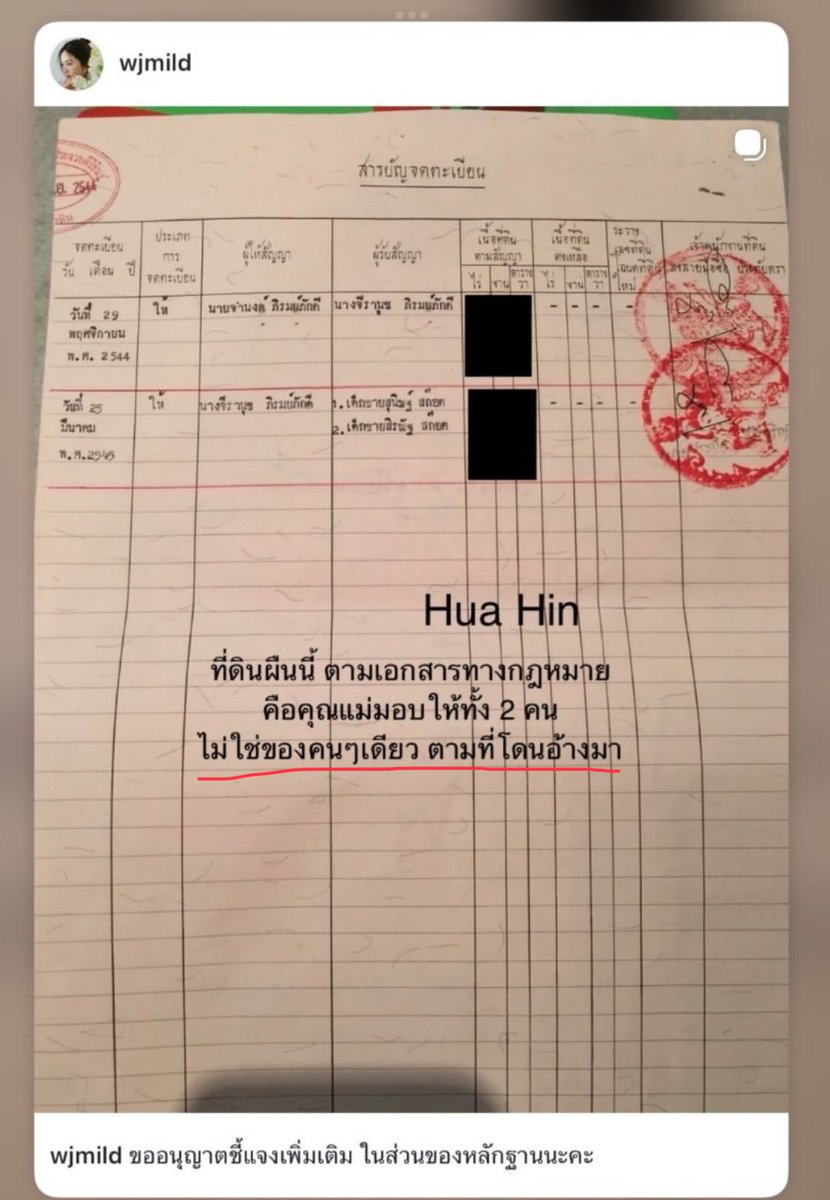 wjmild
สารบัญจดทะเบียน
2544
จดทะเบียน
วัน เดือน ปี
ประเภท
การ
จดทะเบียน
ผู้ให้สัญญา
ผู้รับสัญญา
เนื้อที่ดิน
ตามสัญญา
ไร่ งาน ตาราง
วา
เนื้อที่ดิน
คงเหลือ
ไร่ งาน ตาราง
วา
ระวาง
เลขที่ดิน
โฉนดที่ดิน
ใหม่
เจ้าพนักงานที่ดิน
ลงลายมือชื่อ ประทับตรา
วันที่ 29
พฤศจิกายน
พ.ศ. 2544
ให้
นายจำนงค์ ภิรมย์ภักดี
นางจีรานุช ภิรมย์ภักดี
- - - -
วันที่ 25
มีนาคม
พ.ศ.2545
ให้
นางจีรานุช ภิรมย์ภักดี
1. เด็กชายสุนิษฐ์ สก๊อต
2. เด็กชายสิรณัฐ สก๊อต
- - - -
Hua Hin
ที่ดินผืนนี้ ตามเอกสารทางกฎหมาย
คือคุณแม่มอบให้ทั้ง 2 คน
ไม่ใช่ของคนๆเดียว ตามที่โดนอ้างมา
wjmild ขออนุญาตชี้แจงเพิ่มเติม ในส่วนของหลักฐานนะคะ